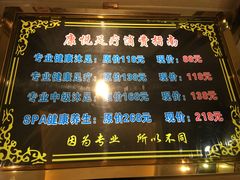 康悦足疗消费指南
专业健康沐足：原价118元 现价：88元
专业健康沐足：原价138元 现价：118元
专业中级沐足：原价168元 现价：138元
SPA健康养生：原价268元 现价：218元
因为专业 所以不同